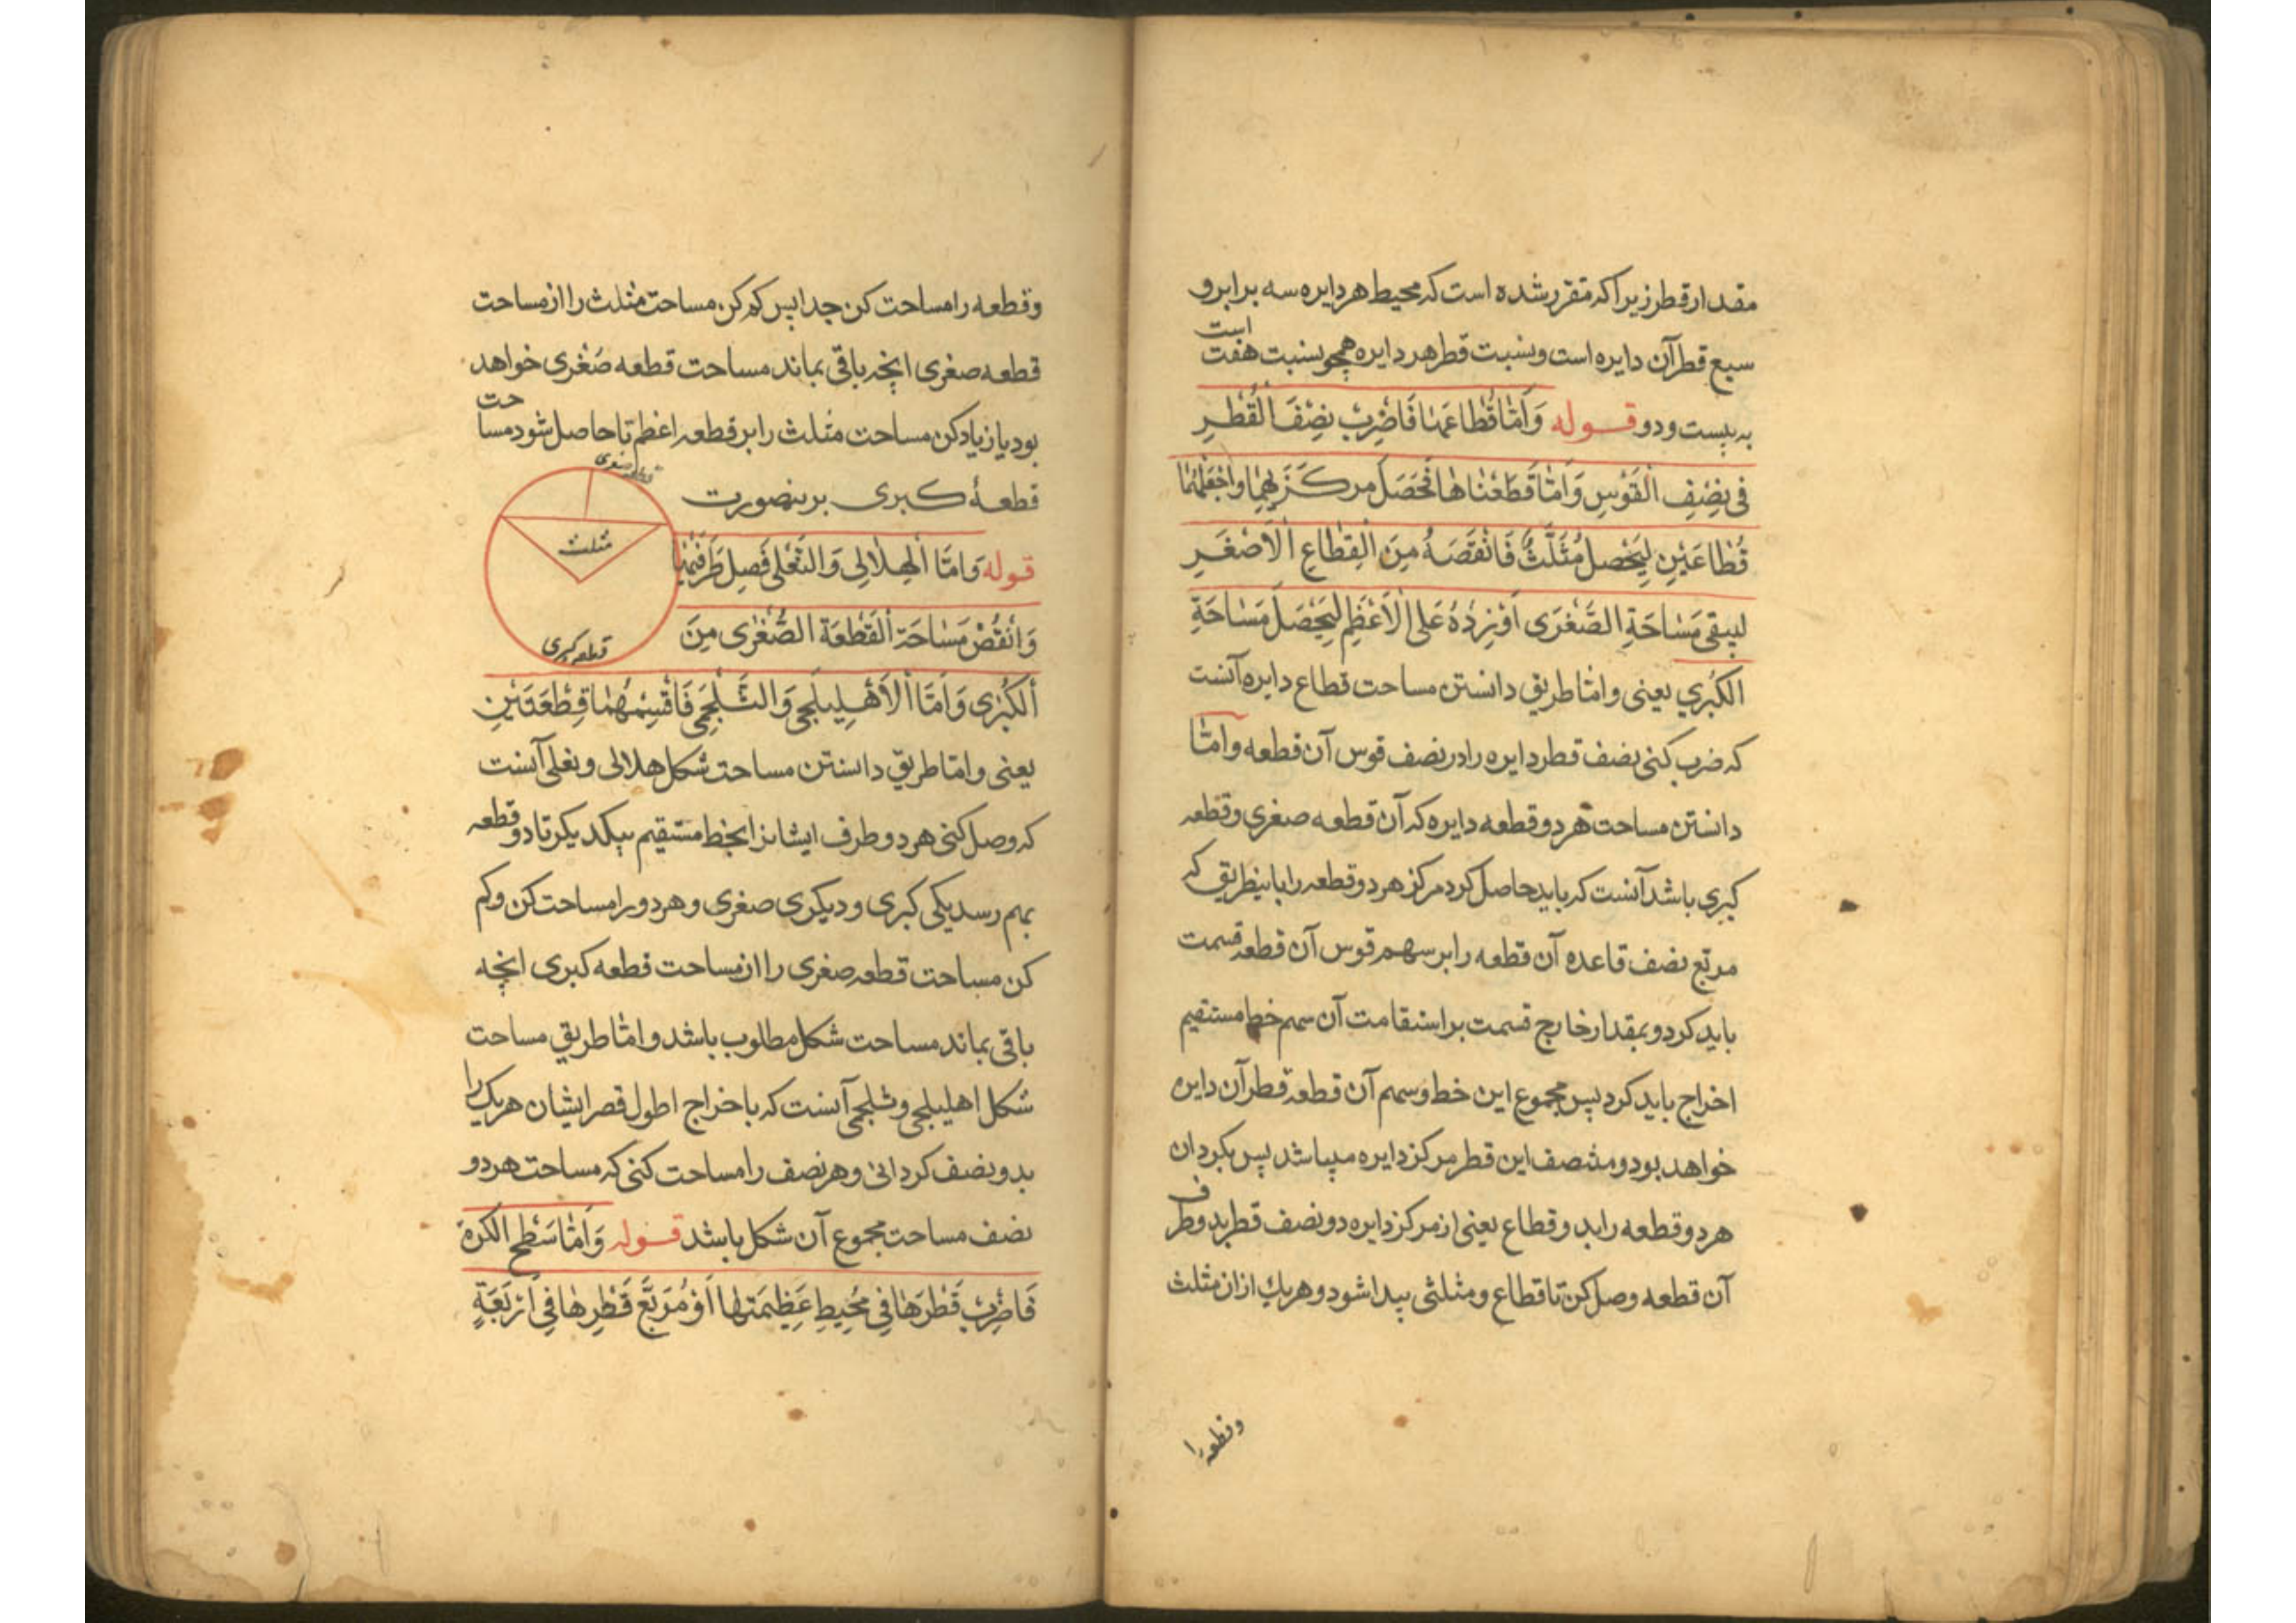 مقدار قطر زیرا که مقرر شده است که محیط هر دایره سه برابر و
سبع قطر آن دایره است و نسبت قطر هر دایره همچو نسبت هفت است
به بیست و دو قوله وَاَمّا قُطاعَها فَاضْرِبْ نِصْفَ الْقُطْرِ
فی نِصْفِ الْقَوْسِ وَاَمّا قَطَعْتاها فَحَصِّلْ مرکَزَیْهِما واجْعَلْهُما
قُطاعَیْنِ لِیَحْصِلَ مُثَلَّثٌ فَانْقَصَهُ مِنَ الْقِطاعِ الْاَصْغَرِ
لیبقی مَساحَةِ الصُّغْرَی اَوْ زِدْهُ عَلَی الْاَعْظَمِ لِیَحْصَلَ مَساحَةِ
الکُبْرِی یعنی و امّا طریق دانستن مساحت قطاع دایره آنست
که ضرب کنی نصف قطر دایره را در نصف قوس آن قطعه و امّا
دانستن مساحت هر دو قطعه دایره که آن قطعه صغری و قطعه
کبری باشد آنست که باید حاصل کرد مرکز هر دو قطعه را باینطریق که
مربّع نصف قاعده آن قطعه را بر سهم قوس آن قطعه قسمت
باید کرد و بمقدار خارج قسمت بر استقامت آن سهم خط مستقیم
اخراج باید کرد پس مجموع این خط و سهم آن قطعه قطر آن دایره
خواهد بود و منتصف این قطر مرکز دایره میباشد پس بکردان
هر دو قطعه را بدو قطاع یعنی از مرکز دایره دو نصف قطر بدو طرف
آن قطعه وصل کن تا قطاع و مثلثی پیدا شود و هر یك از ان مثلث
وقطعه را
وقطعه را مساحت کن جدا پس کم کن مساحت مثلث را از مساحت
قطعه صغری انچه باقی بماند مساحت قطعه صُغْری خواهد
بود یا زیاد کن مساحت مثلث را بر قطعه اعظم تا حاصل شود مساحت
قطعهٔ کبری برینصورت
قطعه صغری
مثلث
قطعه کبری
قوله وَامّا الْهِلالِی وَالنَّعْلی فَصِل طَرَفَیْهِما
وَانْقُصْ مَساحَةَ الْقَطْعَة الصُّغْرٰی مِنَ
اَلکُبْرٰی وَاَمّا الْاَهْلِیلَجی وَالشَّلْجَمی فَاقْسِمْهُما قِطْعَتَیْنِ
یعنی و امّا طریق دانستن مساحت شکل هلالی و نعلی آنست
که وصل کنی هر دو طرف ایشانرا بخط مستقیم بیکدیکر تا دو قطعه
بهم رسد یکی کبری و دیکری صغری و هر دو را مساحت کن و کم
کن مساحت قطعه صغری را از مساحت قطعه کبری انچه
باقی بماند مساحت شکل مطلوب باشد و امّا طریق مساحت
شکل اهلیلجی و شلجمی آنست که با خراج اطول قصر ایشان هر یک را
بدو نصف کردانی و هر نصف را مساحت کنی که مساحت هر دو
نصف مساحت مجموع آن شکل باشد قوله وَاَمّا سَطْح الکُرَة
فَاضْرِبْ قُطْرَها فِی مُحِیطِ عَظِیمَتها اَوْ مُرَبَّعَ قُطْرِها فِی اَرْبَعَةٍ